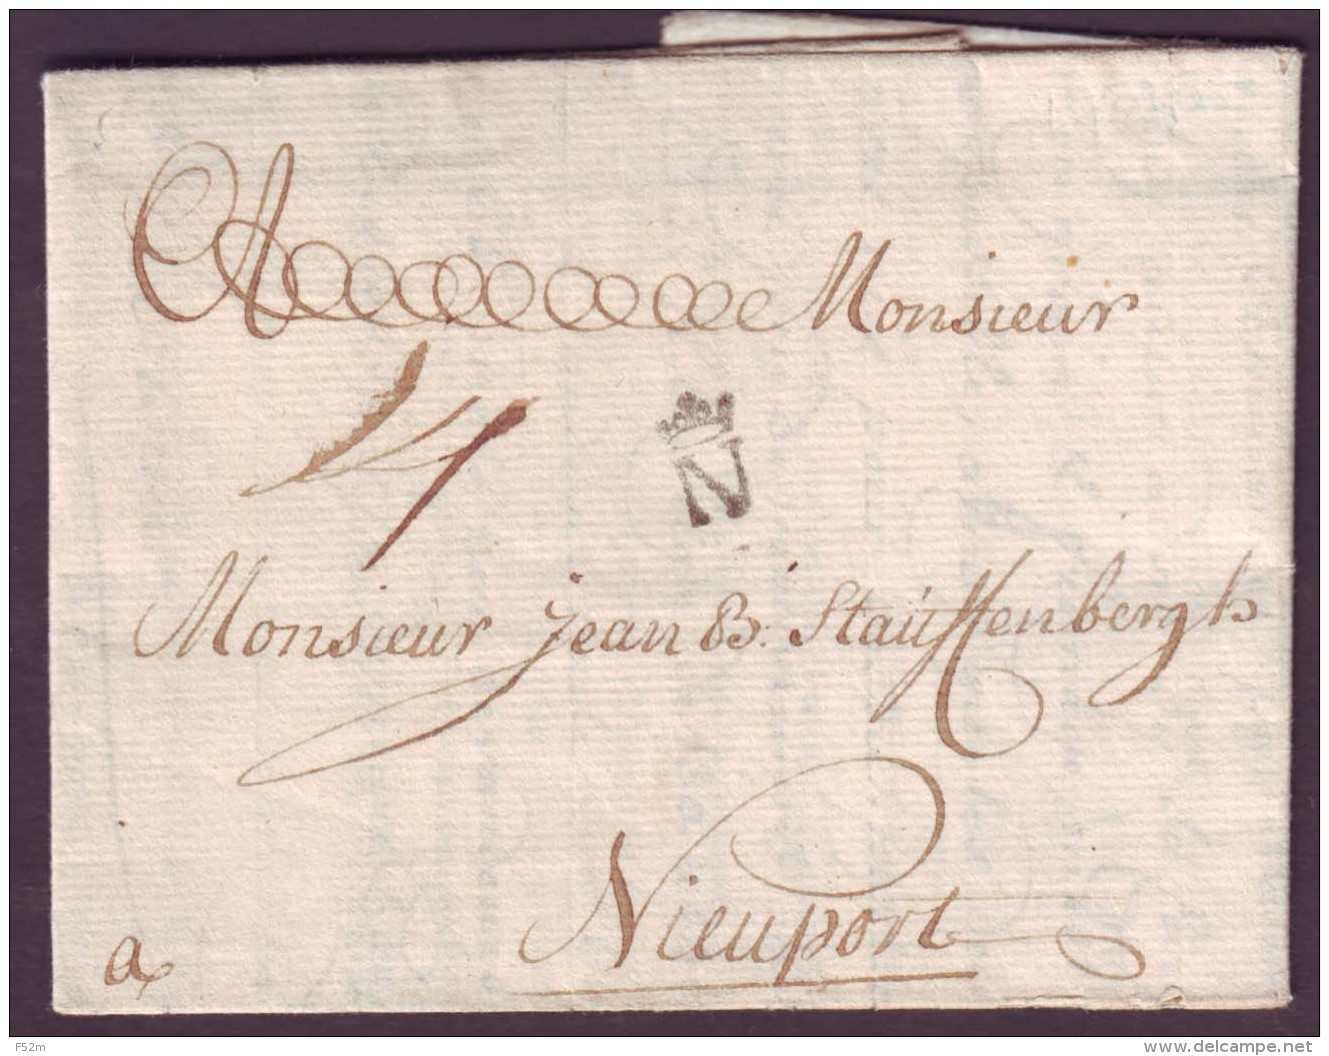 A Monsieur
N
Monsieur Jean B: Stauffenbergh
a Nieuport
F52m
delcampe.net